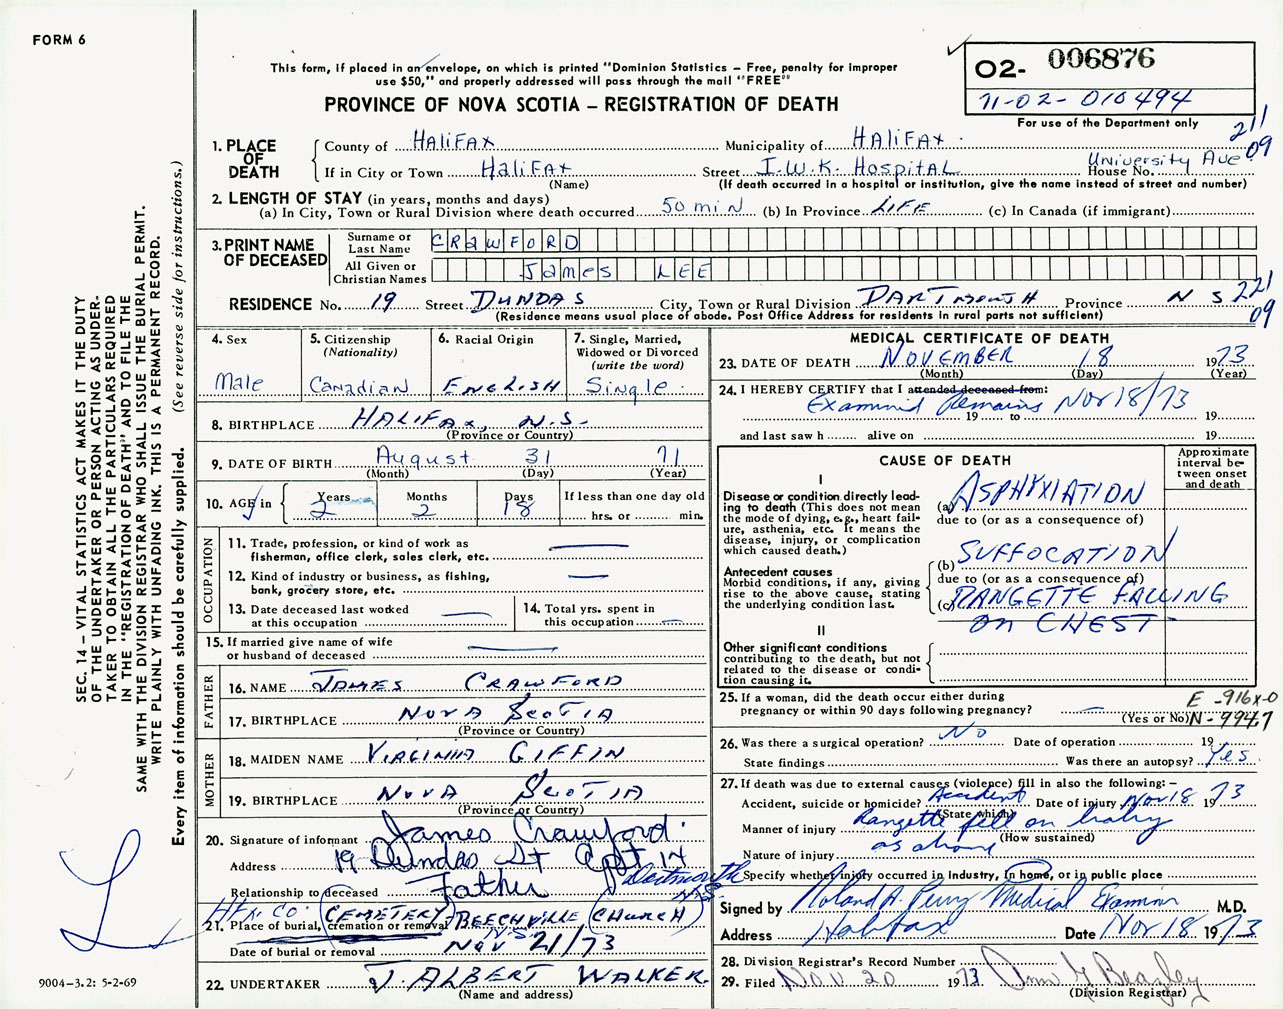 FORM 6
This form, if placed in an envelope, on which is printed "Dominion Statistics – Free, penalty for improper
use $50," and properly addressed will pass through the mail "FREE"
PROVINCE OF NOVA SCOTIA – REGISTRATION OF DEATH
O2- 006876
71-02-010494
For use of the Department only
211
09
1. PLACE OF DEATH
County of HaliFax Municipality of HALIFAX
If in City or Town HaliFax Street I.W.K. HospitaL House No. University Ave
(Name) (If death occurred in a hospital or institution, give the name instead of street and number)
2. LENGTH OF STAY (in years, months and days)
(a) In City, Town or Rural Division where death occurred 50 min (b) In Province LIFE (c) In Canada (if immigrant)
3. PRINT NAME OF DECEASED
Surname or Last Name CRAWFORD
All Given or Christian Names James LEE
RESIDENCE No. 19 Street DUNDAS City, Town or Rural Division DARTMOUTH Province N S
221
09
(Residence means usual place of abode. Post Office Address for residents in rural parts not sufficient)
4. Sex
Male
5. Citizenship
(Nationality)
Canadian
6. Racial Origin
ENGLISH
7. Single, Married,
Widowed or Divorced
(write the word)
Single
8. BIRTHPLACE HALIFAX, N.S.
(Province or Country)
9. DATE OF BIRTH August 31 71
(Month) (Day) (Year)
10. AGE in
Years Months Days If less than one day old
2 2 18 hrs. or min.
OCCUPATION
11. Trade, profession, or kind of work as
fisherman, office clerk, sales clerk, etc.
12. Kind of industry or business, as fishing,
bank, grocery store, etc.
13. Date deceased last worked
at this occupation
14. Total yrs. spent in
this occupation
15. If married give name of wife
or husband of deceased
FATHER
16. NAME JAMES CRAWFORD
17. BIRTHPLACE NOVA SCOTIA
(Province or Country)
MOTHER
18. MAIDEN NAME VIRGINIA GIFFIN
19. BIRTHPLACE NOVA SCOTIA
(Province or Country)
20. Signature of informant James Crawford
Address 19 Dundas St Apt 14
Dartmouth N.S.
Relationship to deceased Father
HFX. CO. (CEMETERY) BEECHVILLE (CHURCH)
21. Place of burial, cremation or removal N.S.
Date of burial or removal Nov 21/73
22. UNDERTAKER J. ALBERT WALKER
(Name and address)
MEDICAL CERTIFICATE OF DEATH
23. DATE OF DEATH NOVEMBER 18 1973
(Month) (Day) (Year)
24. I HEREBY CERTIFY that I attended deceased from:
Examined Remains Nov 18/73
19 to 19
and last saw h alive on 19
CAUSE OF DEATH
Approximate
interval be-
tween onset
and death
I
Disease or condition directly lead-
ing to death (This does not mean
the mode of dying, e.g., heart fail-
ure, asthenia, etc. It means the
disease, injury, or complication
which caused death.)
(a) ASPHYXIATION
due to (or as a consequence of)
Antecedent causes
Morbid conditions, if any, giving
rise to the above cause, stating
the underlying condition last.
(b) SUFFOCATION
due to (or as a consequence of)
(c) RANGETTE FALLING
on CHEST
II
Other significant conditions
contributing to the death, but not
related to the disease or condi-
tion causing it.
25. If a woman, did the death occur either during
pregnancy or within 90 days following pregnancy?
(Yes or No)
E-916X-0
N-994.7
26. Was there a surgical operation? No Date of operation 19
State findings Was there an autopsy? Yes
27. If death was due to external causes (violence) fill in also the following:–
Accident, suicide or homicide? Accident Date of injury Nov 18 1973
(State which)
Manner of injury Rangette fell on baby
(How sustained)
Nature of injury as above
Specify whether injury occurred in industry, in home, or in public place
Signed by Roland A. Perry Medical Examiner M.D.
Address Halifax Date Nov 18 1973
28. Division Registrar's Record Number
29. Filed Nov 20 1973
(Division Registrar)
SEC. 14 – VITAL STATISTICS ACT MAKES IT THE DUTY
OF THE UNDERTAKER OR PERSON ACTING AS UNDER-
TAKER TO OBTAIN ALL THE PARTICULARS REQUIRED
IN THE "REGISTRATION OF DEATH" AND TO FILE THE
SAME WITH THE DIVISION REGISTRAR WHO SHALL ISSUE THE BURIAL PERMIT.
WRITE PLAINLY WITH UNFADING INK. THIS IS A PERMANENT RECORD.
Every item of information should be carefully supplied. (See reverse side for instructions.)
9004-3.2: 5-2-69